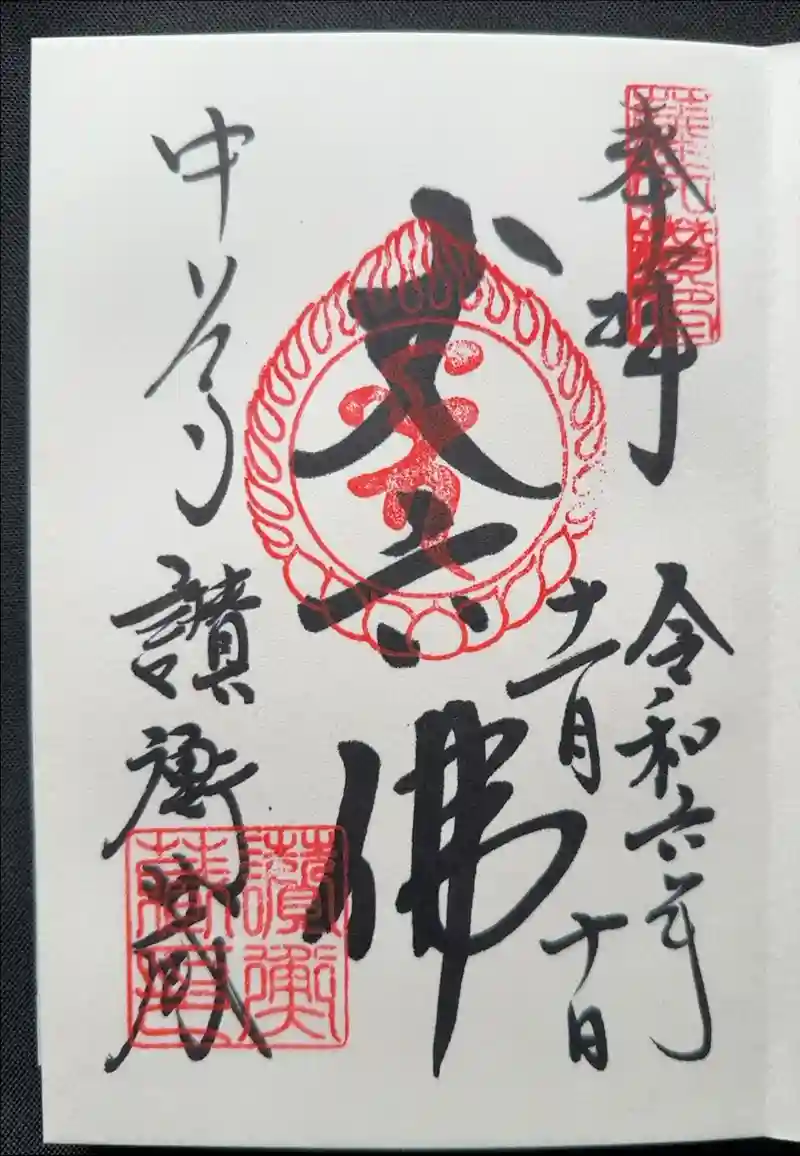 奉拝
令和六年
十一月十日
丈六佛
中尊寺 讃衡蔵
讃衡
蔵印